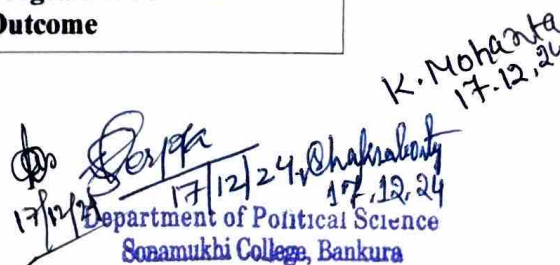 Outcome
K. Mohanta
17.12.24
17/12/24
Chakraborty
17.12.24
17/12/24
Department of Political Science
Sonamukhi College, Bankura